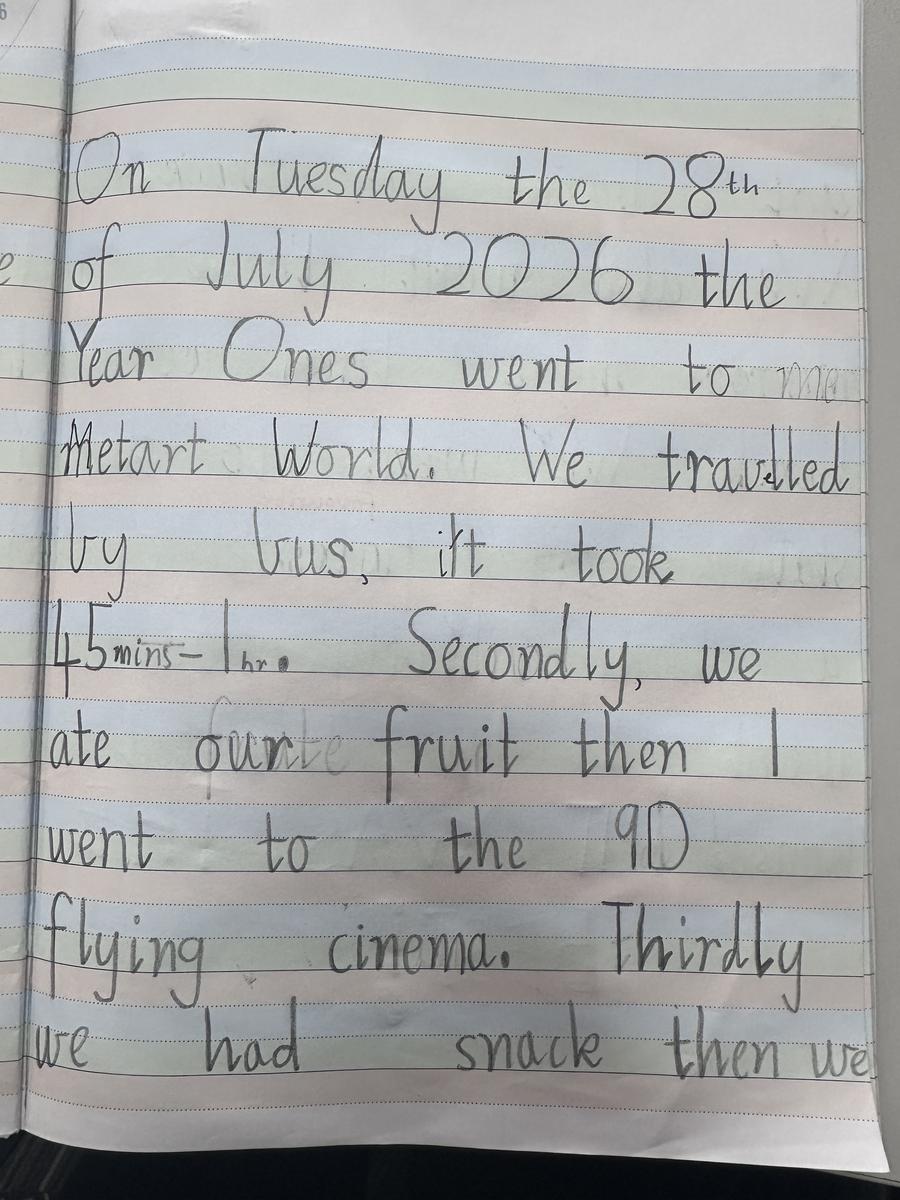 On Tuesday the 28th
of July 2026 the
Year Ones went to
Metart World. We travelled
by bus, it took
45mins-1hr. Secondly, we
ate our fruit then I
went to the 9D
flying cinema. Thirdly
we had snack then we